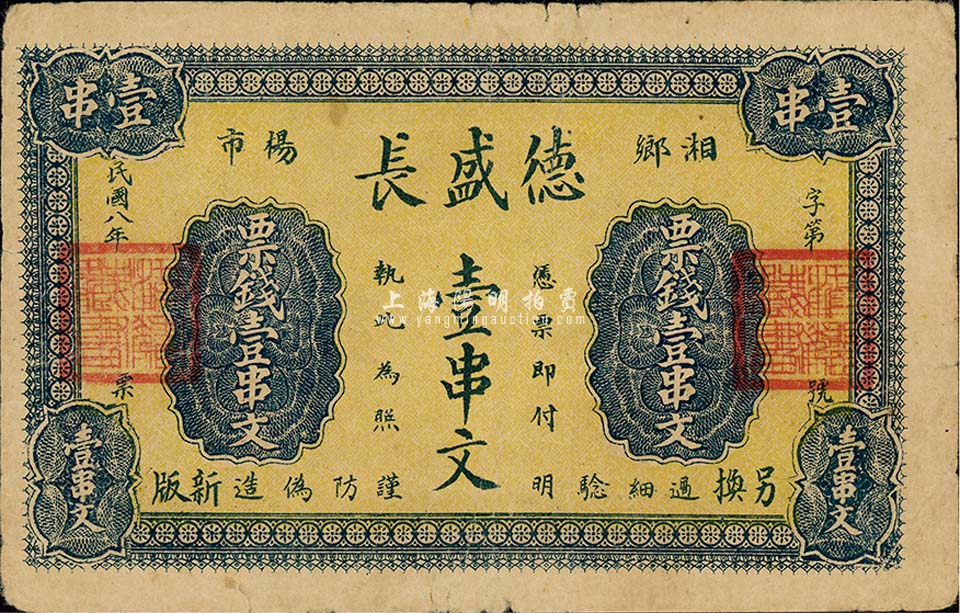 壹串
壹串
湘鄉
德盛長
楊市
字第
號
票錢壹串文
憑票即付
壹串文
執此為照
票錢壹串文
民國八年
票
壹串文
壹串文
另換
過細驗明
謹防偽造
新版
上海陽明拍賣
www.yangmingauction.com